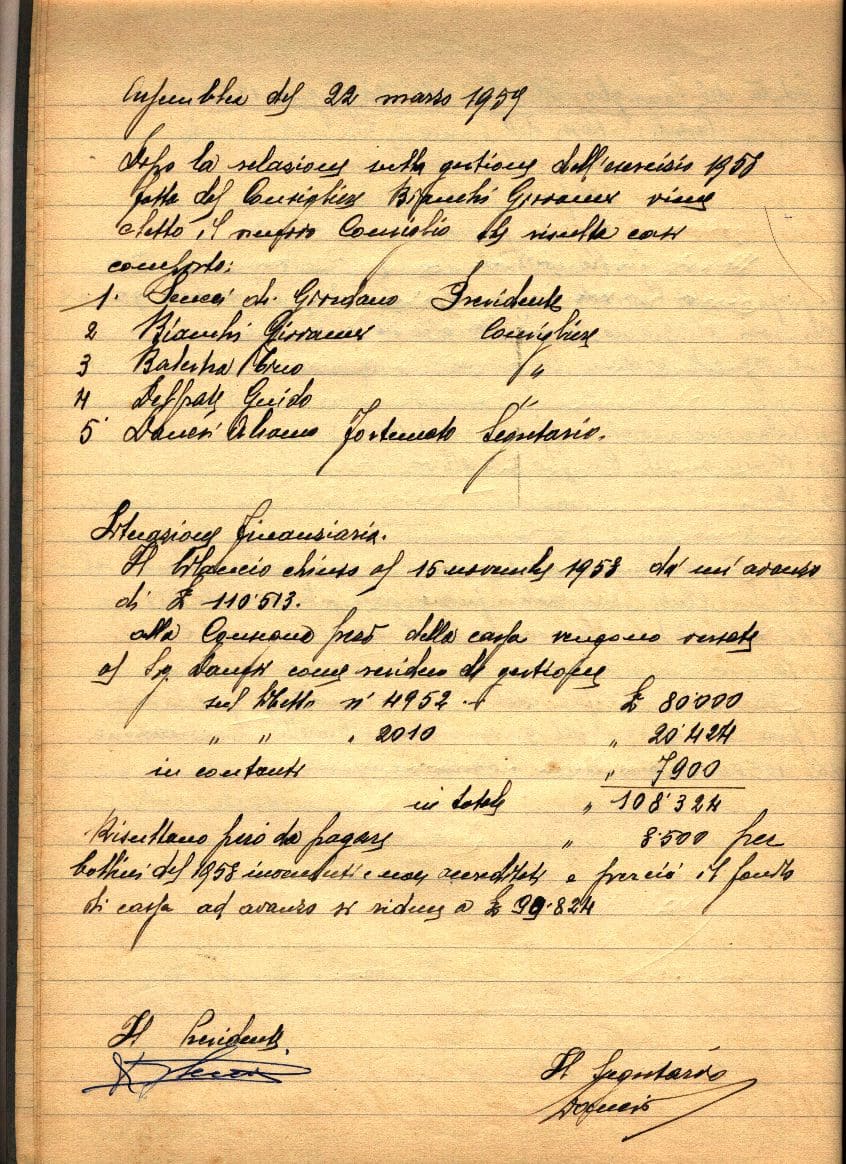 Assemblea del 22 marzo 1959
Dopo la relazione sulla gestione dell'esercizio 1958
fatta dal Consigliere Bianchi Giovanni viene
eletto il nuovo Consiglio che risulta così
composto:
1. Giordano Presidente
2 Bianchi Giovanni Consigliere
3 "
4 Guido "
5 Fortunato Segretario.
Situazione finanziaria.
Il bilancio chiuso al 15 novembre 1958 dà un' avanzo
di £ 110'513.
alla Consegna però della cassa vengono versate
al Sig. come residuo di gestione
sul libretto n° 4952 £ 80'000
" " " 2010 " 20'424
in contanti " 7900
in totale " 108'324
Risultano però da pagare " 8'500 per
bollini del 1958 invenduti e non accreditati e perciò il fondo
di cassa ad avanzo si riduce a £ 99'824
Il Presidente
Il Segretario